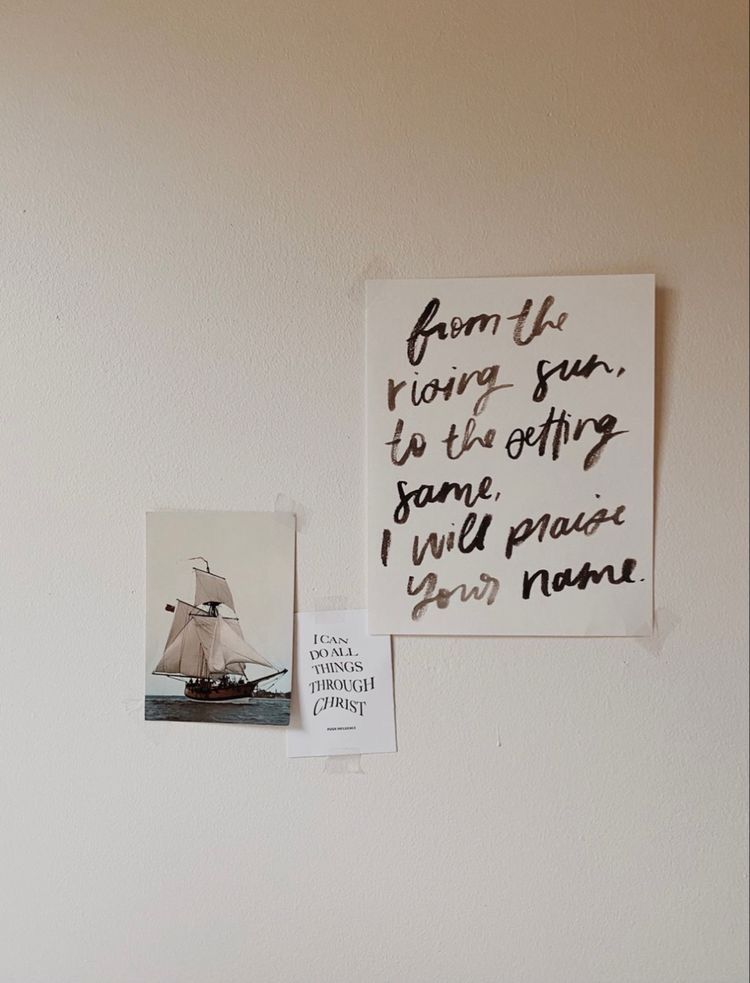 from the
rising sun,
to the setting
same,
I will praise
your name.
I CAN
DO ALL
THINGS
THROUGH
CHRIST